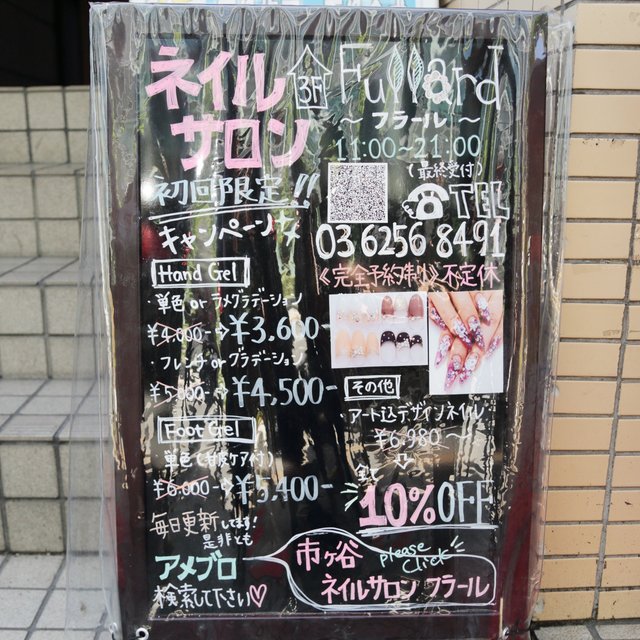 ネイル
サロン
3F
Fullard
～ フラール ～
11:00～21:00
(最終受付)
TEL
03 6256 8491
《完全予約制》不定休
初回限定!!
キャンペーン
Hand Gel
・単色 or ラメグラデーション
¥4,000→¥3,600-
・フレンチ or グラデーション
¥5,000→¥4,500-
Foot Gel
単色(甘皮ケア付)
¥6,000→¥5,400-
その他
・アート込デザインネイル
¥6,980～
全て
10%OFF
毎日更新してます!
是非とも
アメブロ
検索して下さい♡
市ヶ谷
ネイルサロン フラール
please
click